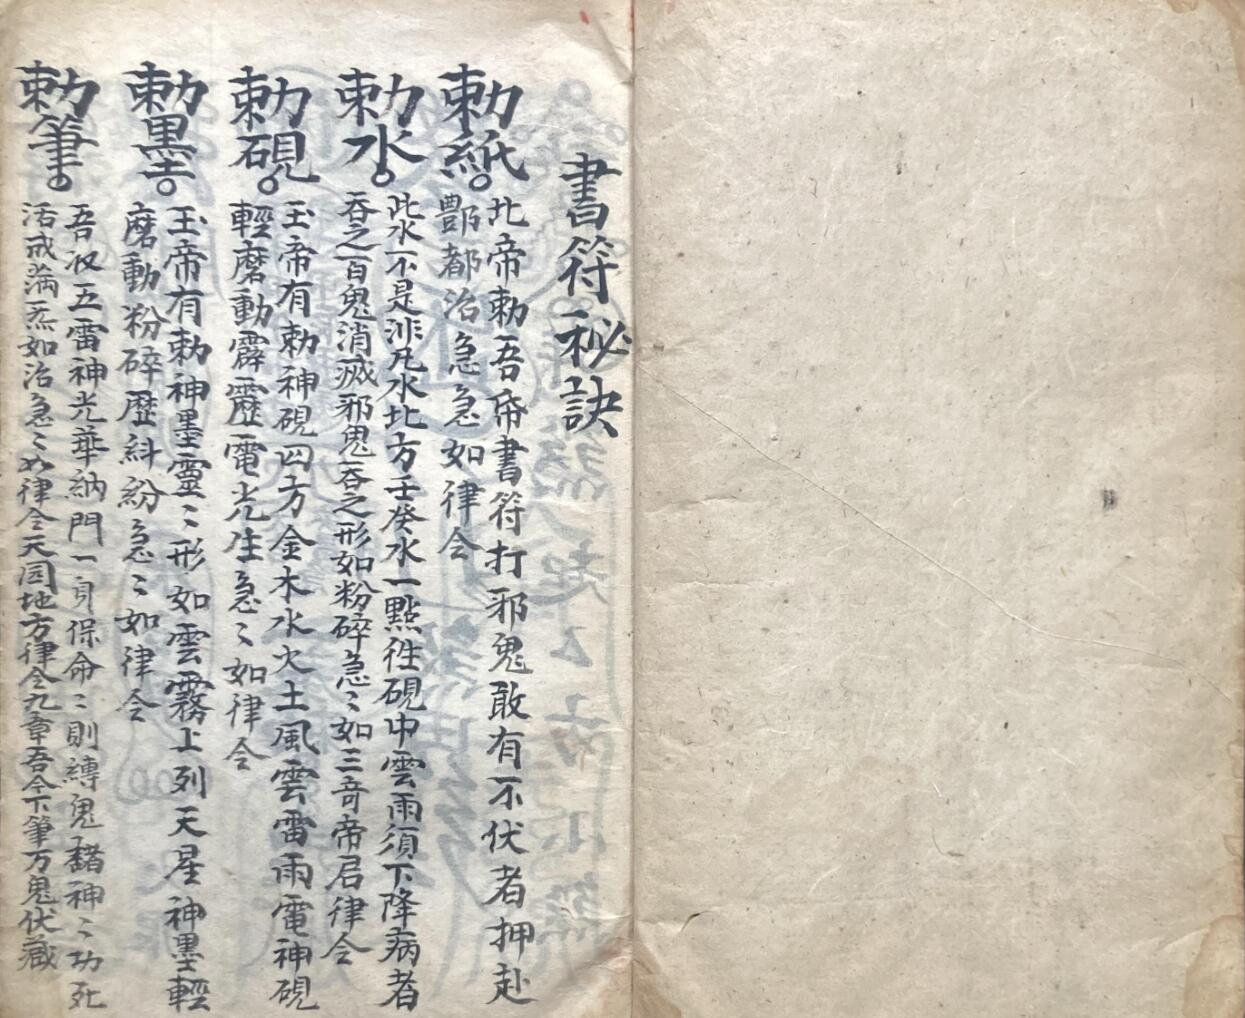 書符秘訣
勅紙
北帝勅吾帋書符打邪鬼敢有不伏者押赴
酆都治急急如律令
勅水
此水不是非凡水北方壬癸水一點徃硯中雲雨須下降病者
吞之百鬼消滅邪鬼吞之形如粉碎急〻如三竒帝君律令
勅硯
玉帝有勅神硯四方金木水火土風雲雷雨電神硯
輕磨動霹靂電光生急〻如律令
勅墨
玉帝有勅神墨靈〻形如雲霧上列天星神墨輕
磨動粉碎歷糾紛急〻如律令
勅筆
吾収五雷神光華納門一身保命〻則縛鬼神〻功死
活戒滿炁如治急〻如律令天园地方律令九章吾今下筆万鬼伏藏